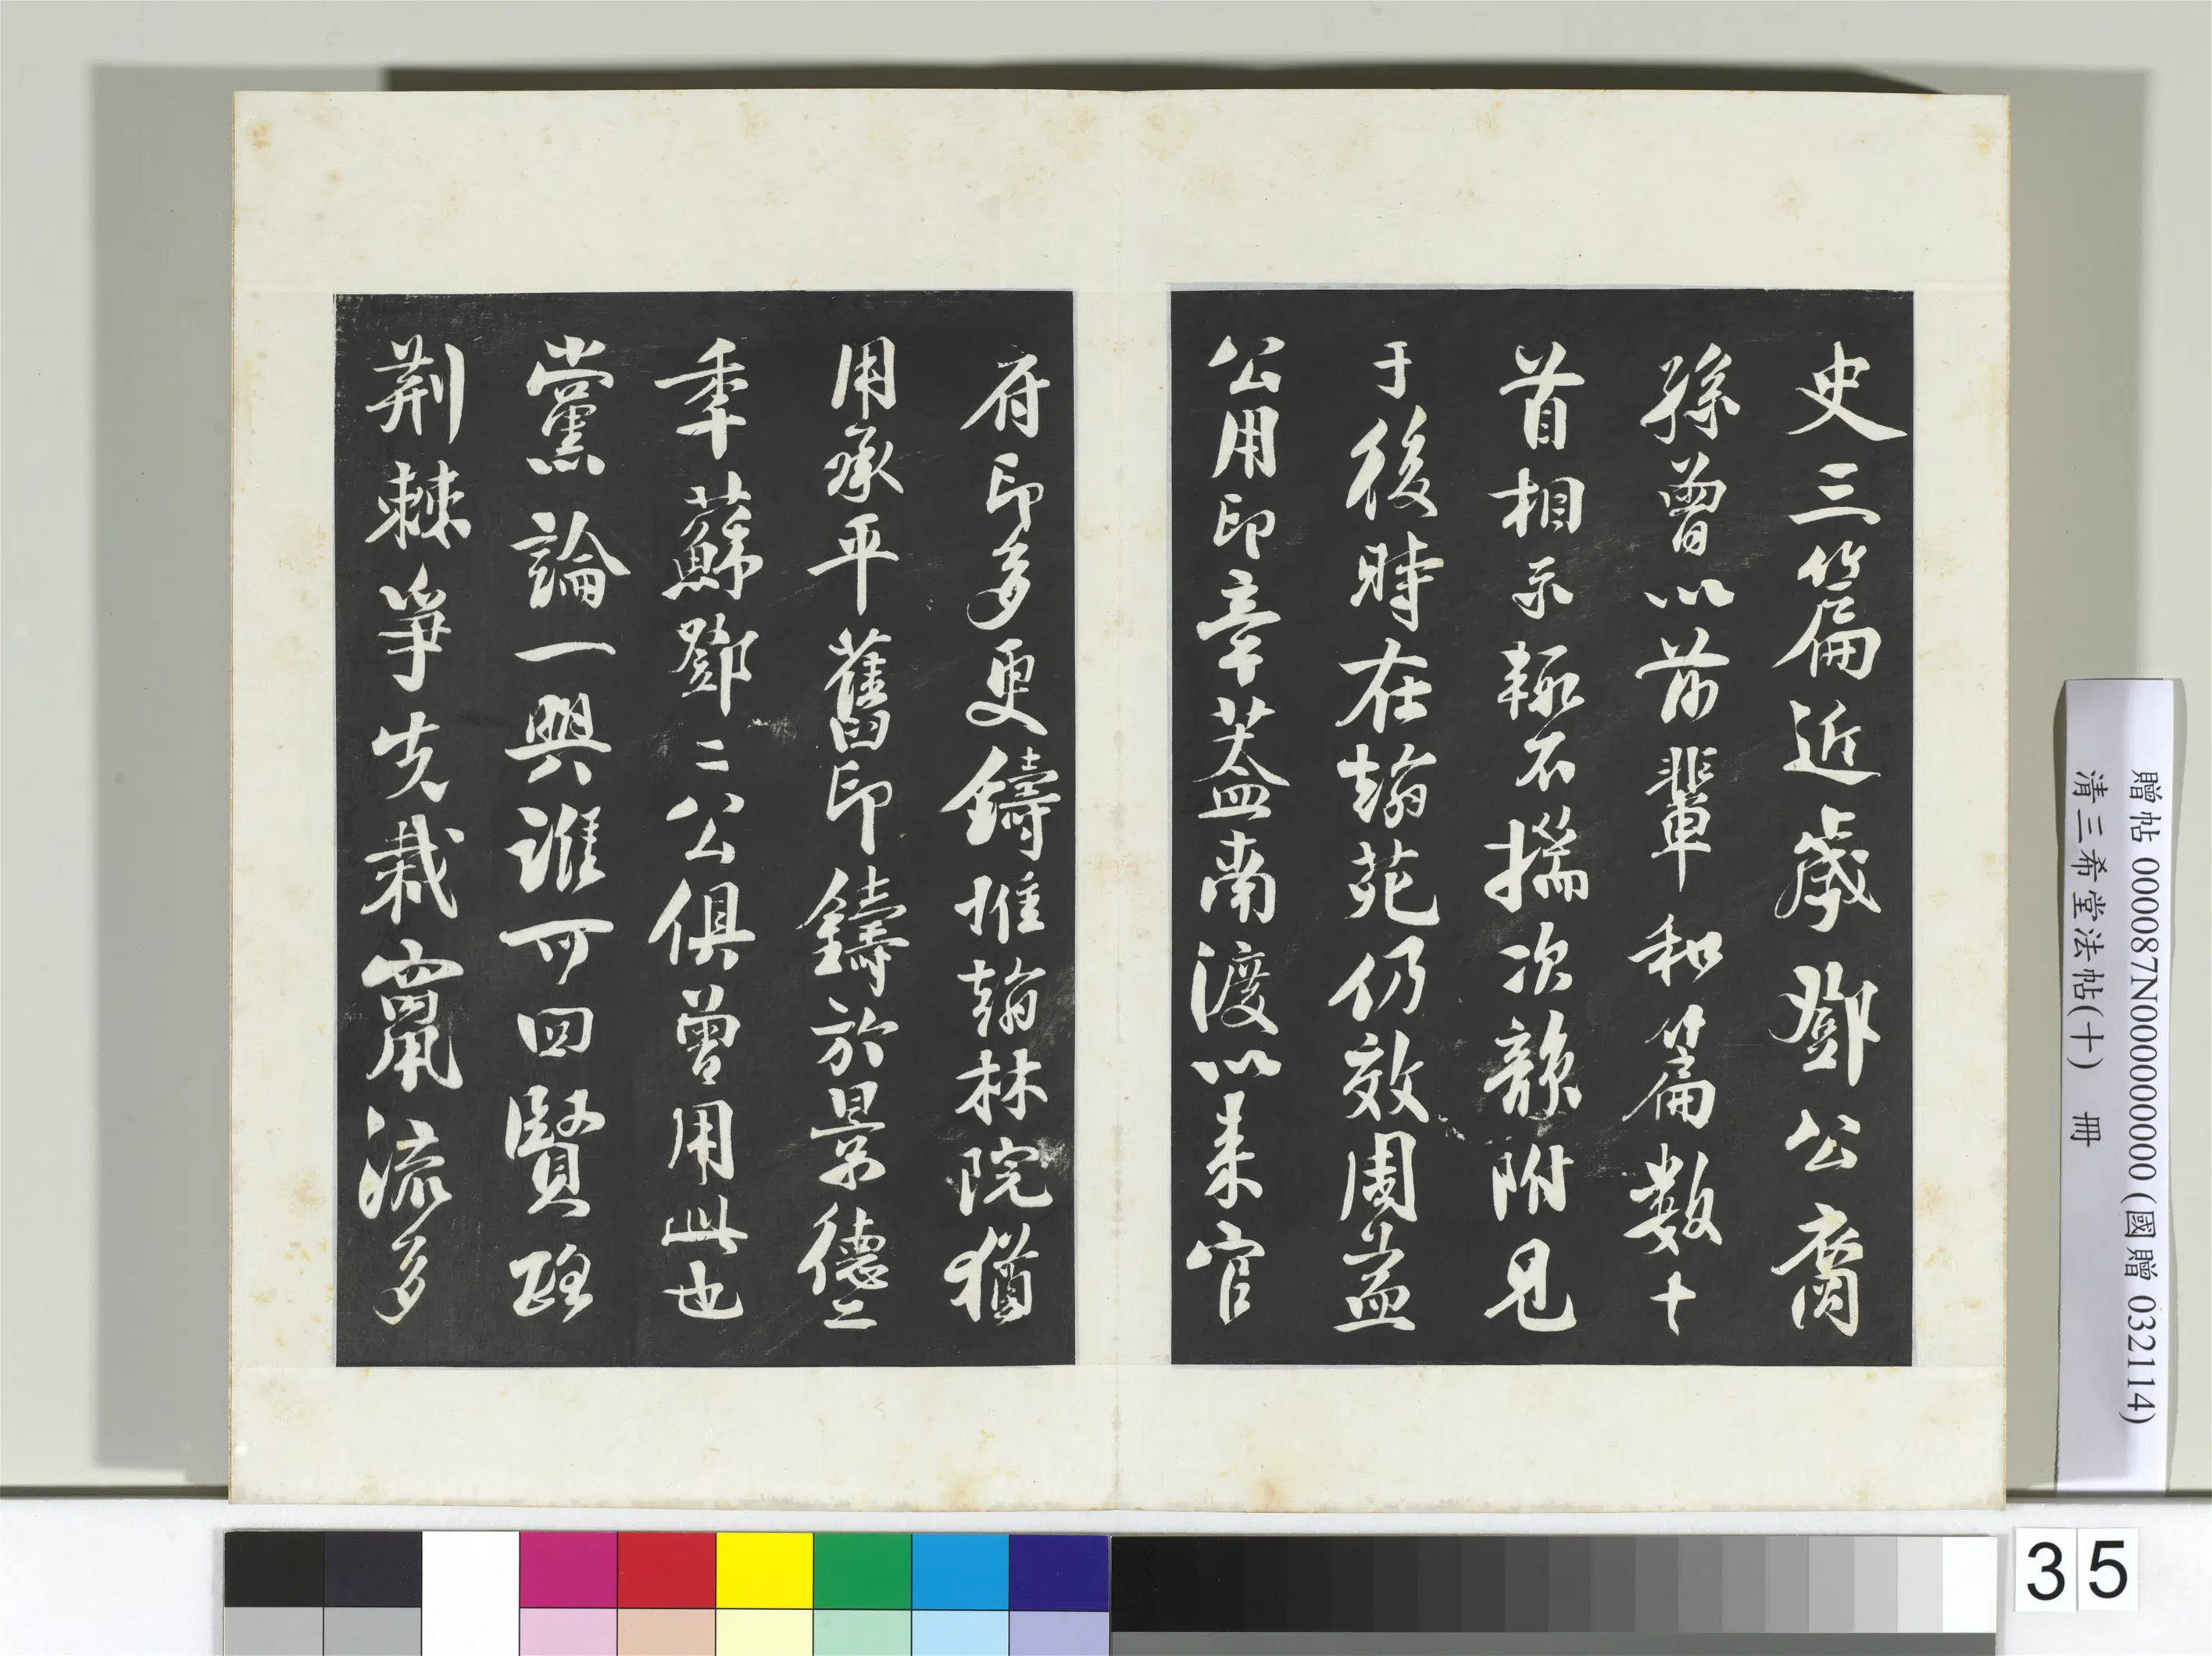 史三篇近歲鄧公裔
孫曾以前輩和篇數十
首相示輒不揣次韻附見
于後時在翰苑仍效周益
公用印章葢南渡以來官
府印多更鑄惟翰林院猶
用承平舊印鑄於景德二
年蘇鄧二公俱曾用此也
黨論一興誰可回賢路
荆棘爭先栽竄流多
贈帖 000087N000000000 (國贈 032114)
清三希堂法帖(十) 冊
35